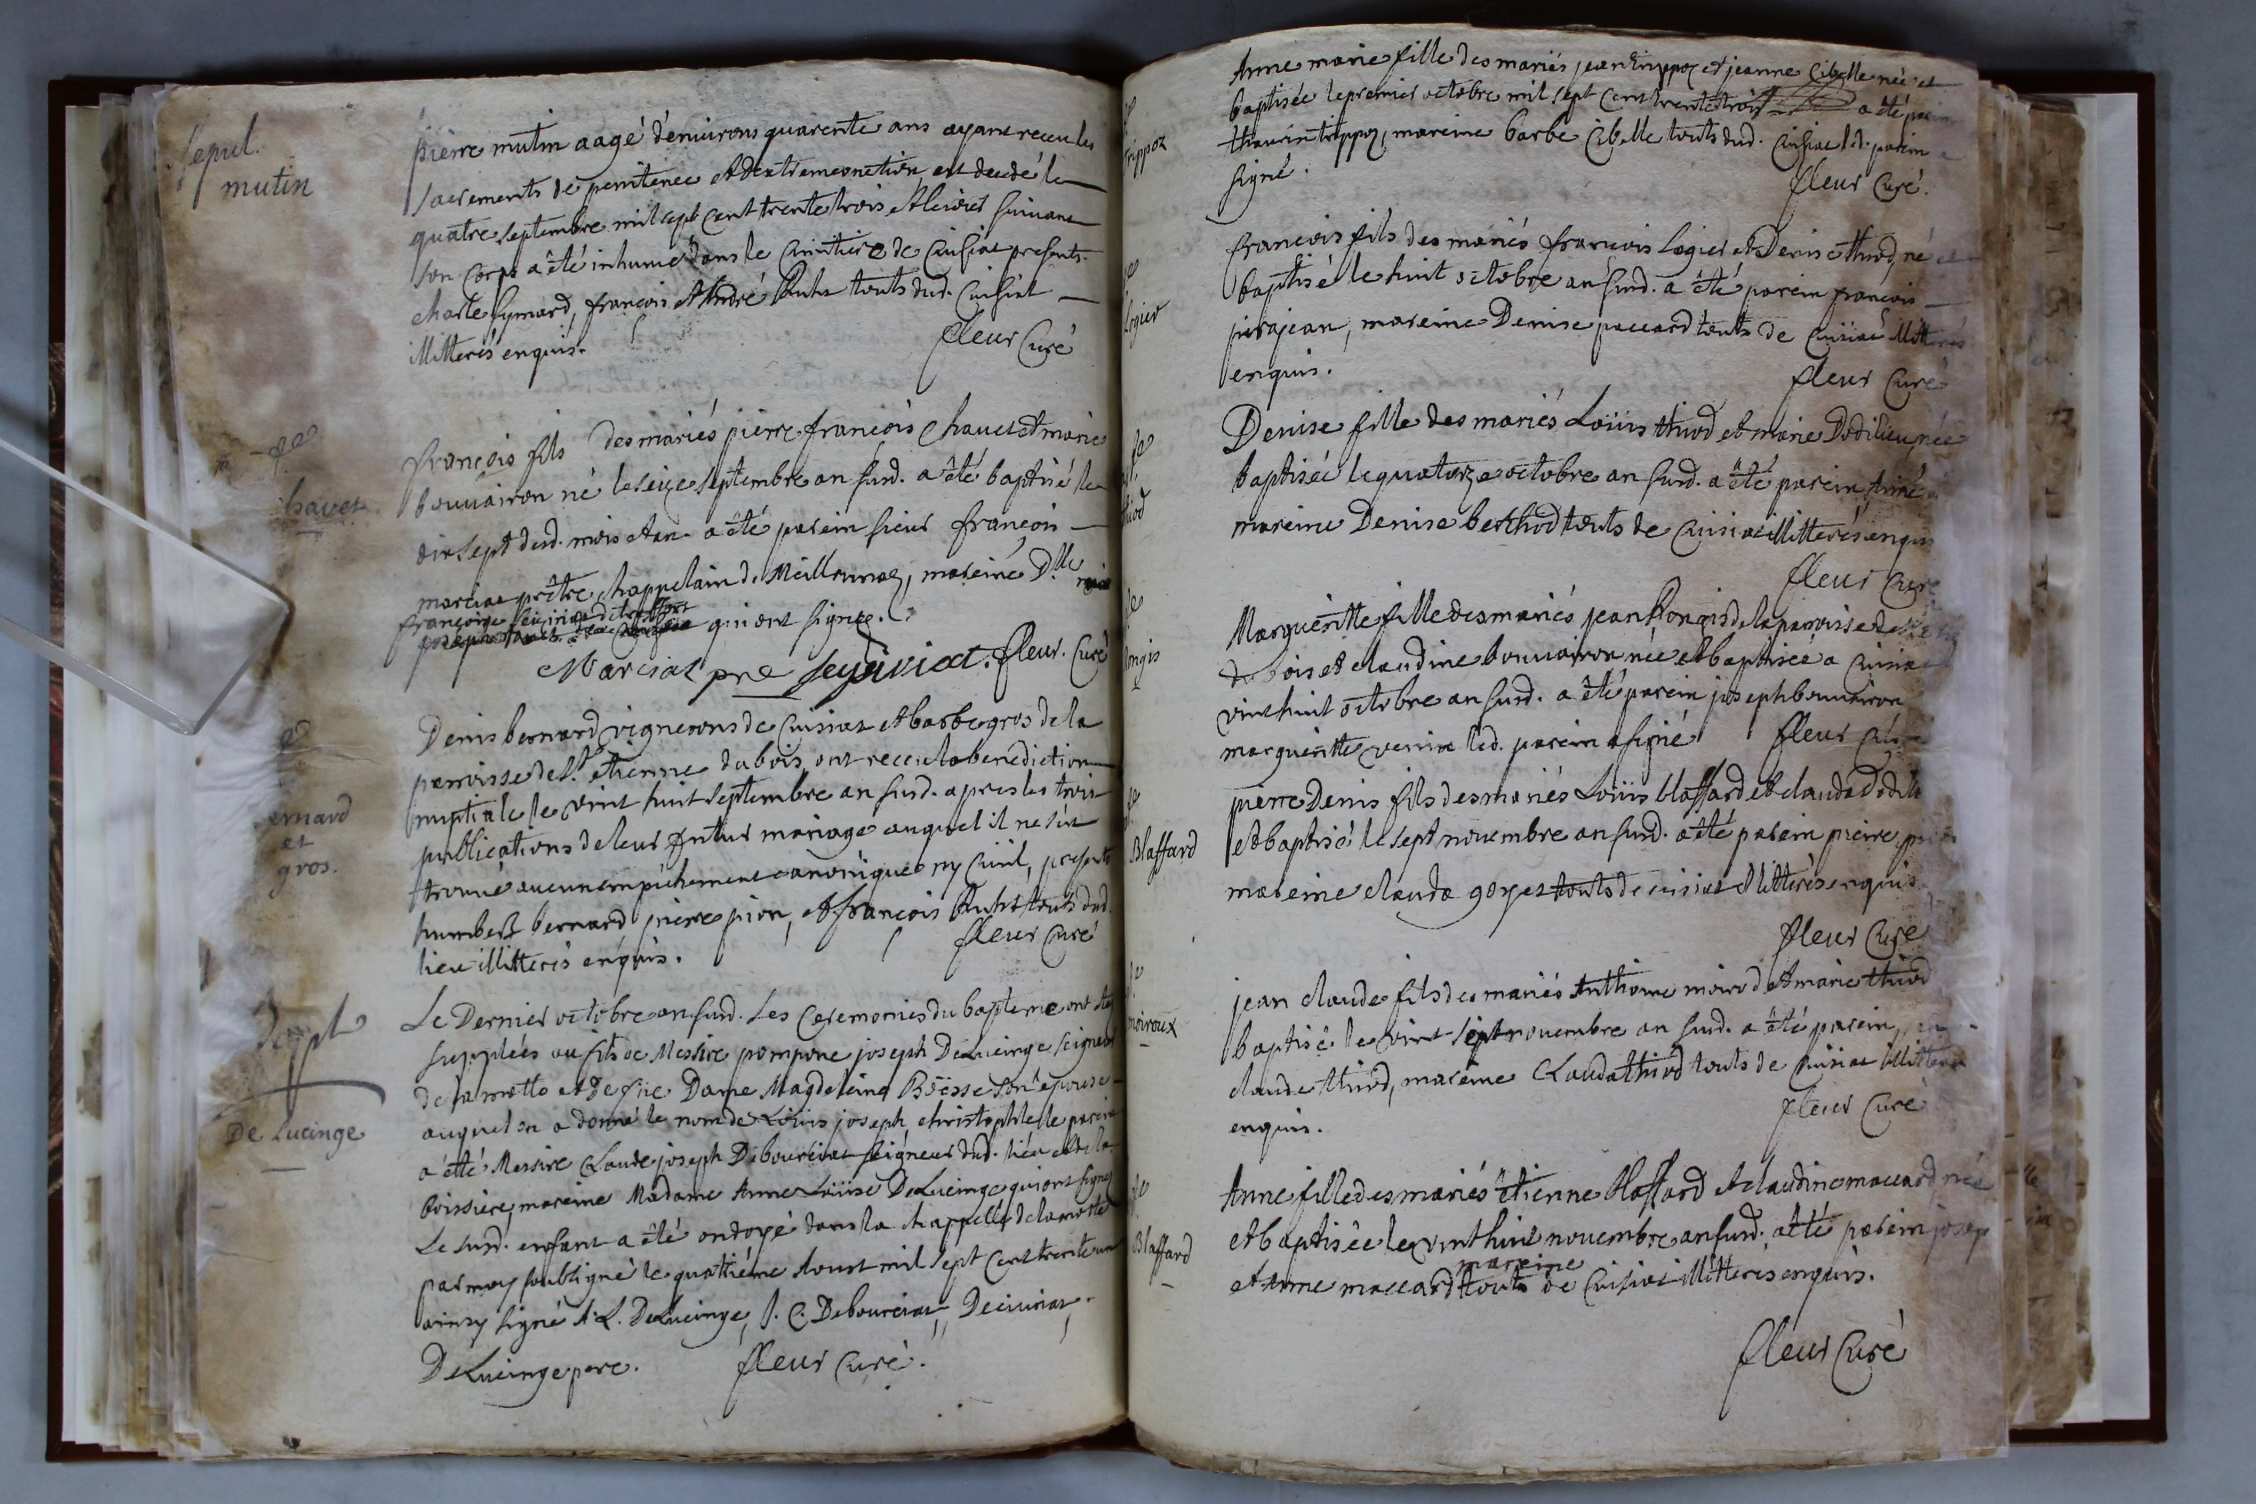 sepul.
mutin
pierre mutin aagé d'environs quarente ans ayant receu les
sacrements de penitence et d'extremeonction est decedé le
quatre septembre mil sept cent trente trois et le jour suivant
son corps a êté inhumé dans le cimitiere de Cuisiat presents
charle symard, françois et André Puht touts dud. Cuisiat
illitterés enquis. fleur Curé
havet
françois fils des mariés pierre françois chavet et marie
bouvairon né le seize septembre an susd. a êté baptisé le
dix sept dud. mois et an a êté parein sieur françois
marciat prêtre chappelain de Meillonnaz, mareine D.lle
françoise seyriziat de treffort
qui ont signez.
Marciat pre seyriziat. fleur. Curé
ernard
et
gros.
Denis bernard vignerons de Cuisiat et barbe gros de la
parroisse de St. etienne du bois, ont receu la benediction
nuptiale le vint huit septembre an susd. apres les trois
publications de leur futur mariage auquel il ne s'est
trouvé aucun empéchement canonique ny Civil, presents
humbert bernard, pierre pion, et françois Puht touts dud.
lieu illitterés enquis. fleur Curé
Suppl
De Lucinge
Le Dernier octobre an susd. Les Ceremonies du baptême ont êté
supplées au fils de Messire pompone joseph De Lucinge seigneur
de la motte et de Dame Magdeleine Boësse son épouse
auquel on a donné le nom de Loüis joseph christophle le parein
a êtté Messire Claude joseph Debourciat seigneur dud. lieu et de la
boissiere, mareine Madame Anne Loüise De Lucinge qui ont signez
Le susd. enfant a êté ondoyé dans la chappelle de la motte
par moy soubsigné le quatriéme Aoust mil sept cent trente un
ainsy signé A. L. De Lucinge, J. C. Debourciat, Decuiriat,
De Lucinge pere. fleur Curé.
trippoz
Anne marie fille des mariés jean trippoz et jeanne Cibelle née et
baptisée le premier octobre mil sept cent trente trois a êté parein
thaurin trippoz, mareine barbe Cibelle touts dud. Cuisiat led. parein a
signé. fleur Curé.
Logier
françois fils des mariés françois Logier et Denise thiod, né et
baptisé le huit octobre an susd. a êté parein françois
pirajean, mareine Denise paccard touts de Cuisiat illitterés
enquis. fleur Curé
Denise fille des mariés Loüis thiod et marie Dodilieu, née
baptisée le quatorze octobre an susd. a êté parein Aimé
mareine Denise berthod touts de Cuisiat illitterés enquis
fleur Curé
longis
Marguëritte fille des mariés jean Longis de la parroisse de
du bois et claudine bouvairon née et baptisée a Cuisiat
vint huit octobre an susd. a êté parein joseph bouvairon
marguëritte led. parein a signé fleur Curé
Blaffard
pierre Denis fils des mariés Loüis blaffard et clauda Dodilieu
et baptisé le sept novembre an susd. a êté parein pierre
mareine clauda goyet touts de cuisiat illitterés enquis
fleur Curé
moiroux
jean claude fils des mariés Anthoine moirod et marie thiod
baptisé le vint sept novembre an susd. a êté parein
claude thiod, mareine Clauda thiod touts de Cuisiat illitterés
enquis. fleur Curé
Blaffard
Anne fille des mariés êtienne blaffard et claudine maccard née
et baptisée le vint huit novembre an susd. a êté parein josep
mareine
et Anne maccard touts de Cuisiat illitterés enquis.
fleur Curé